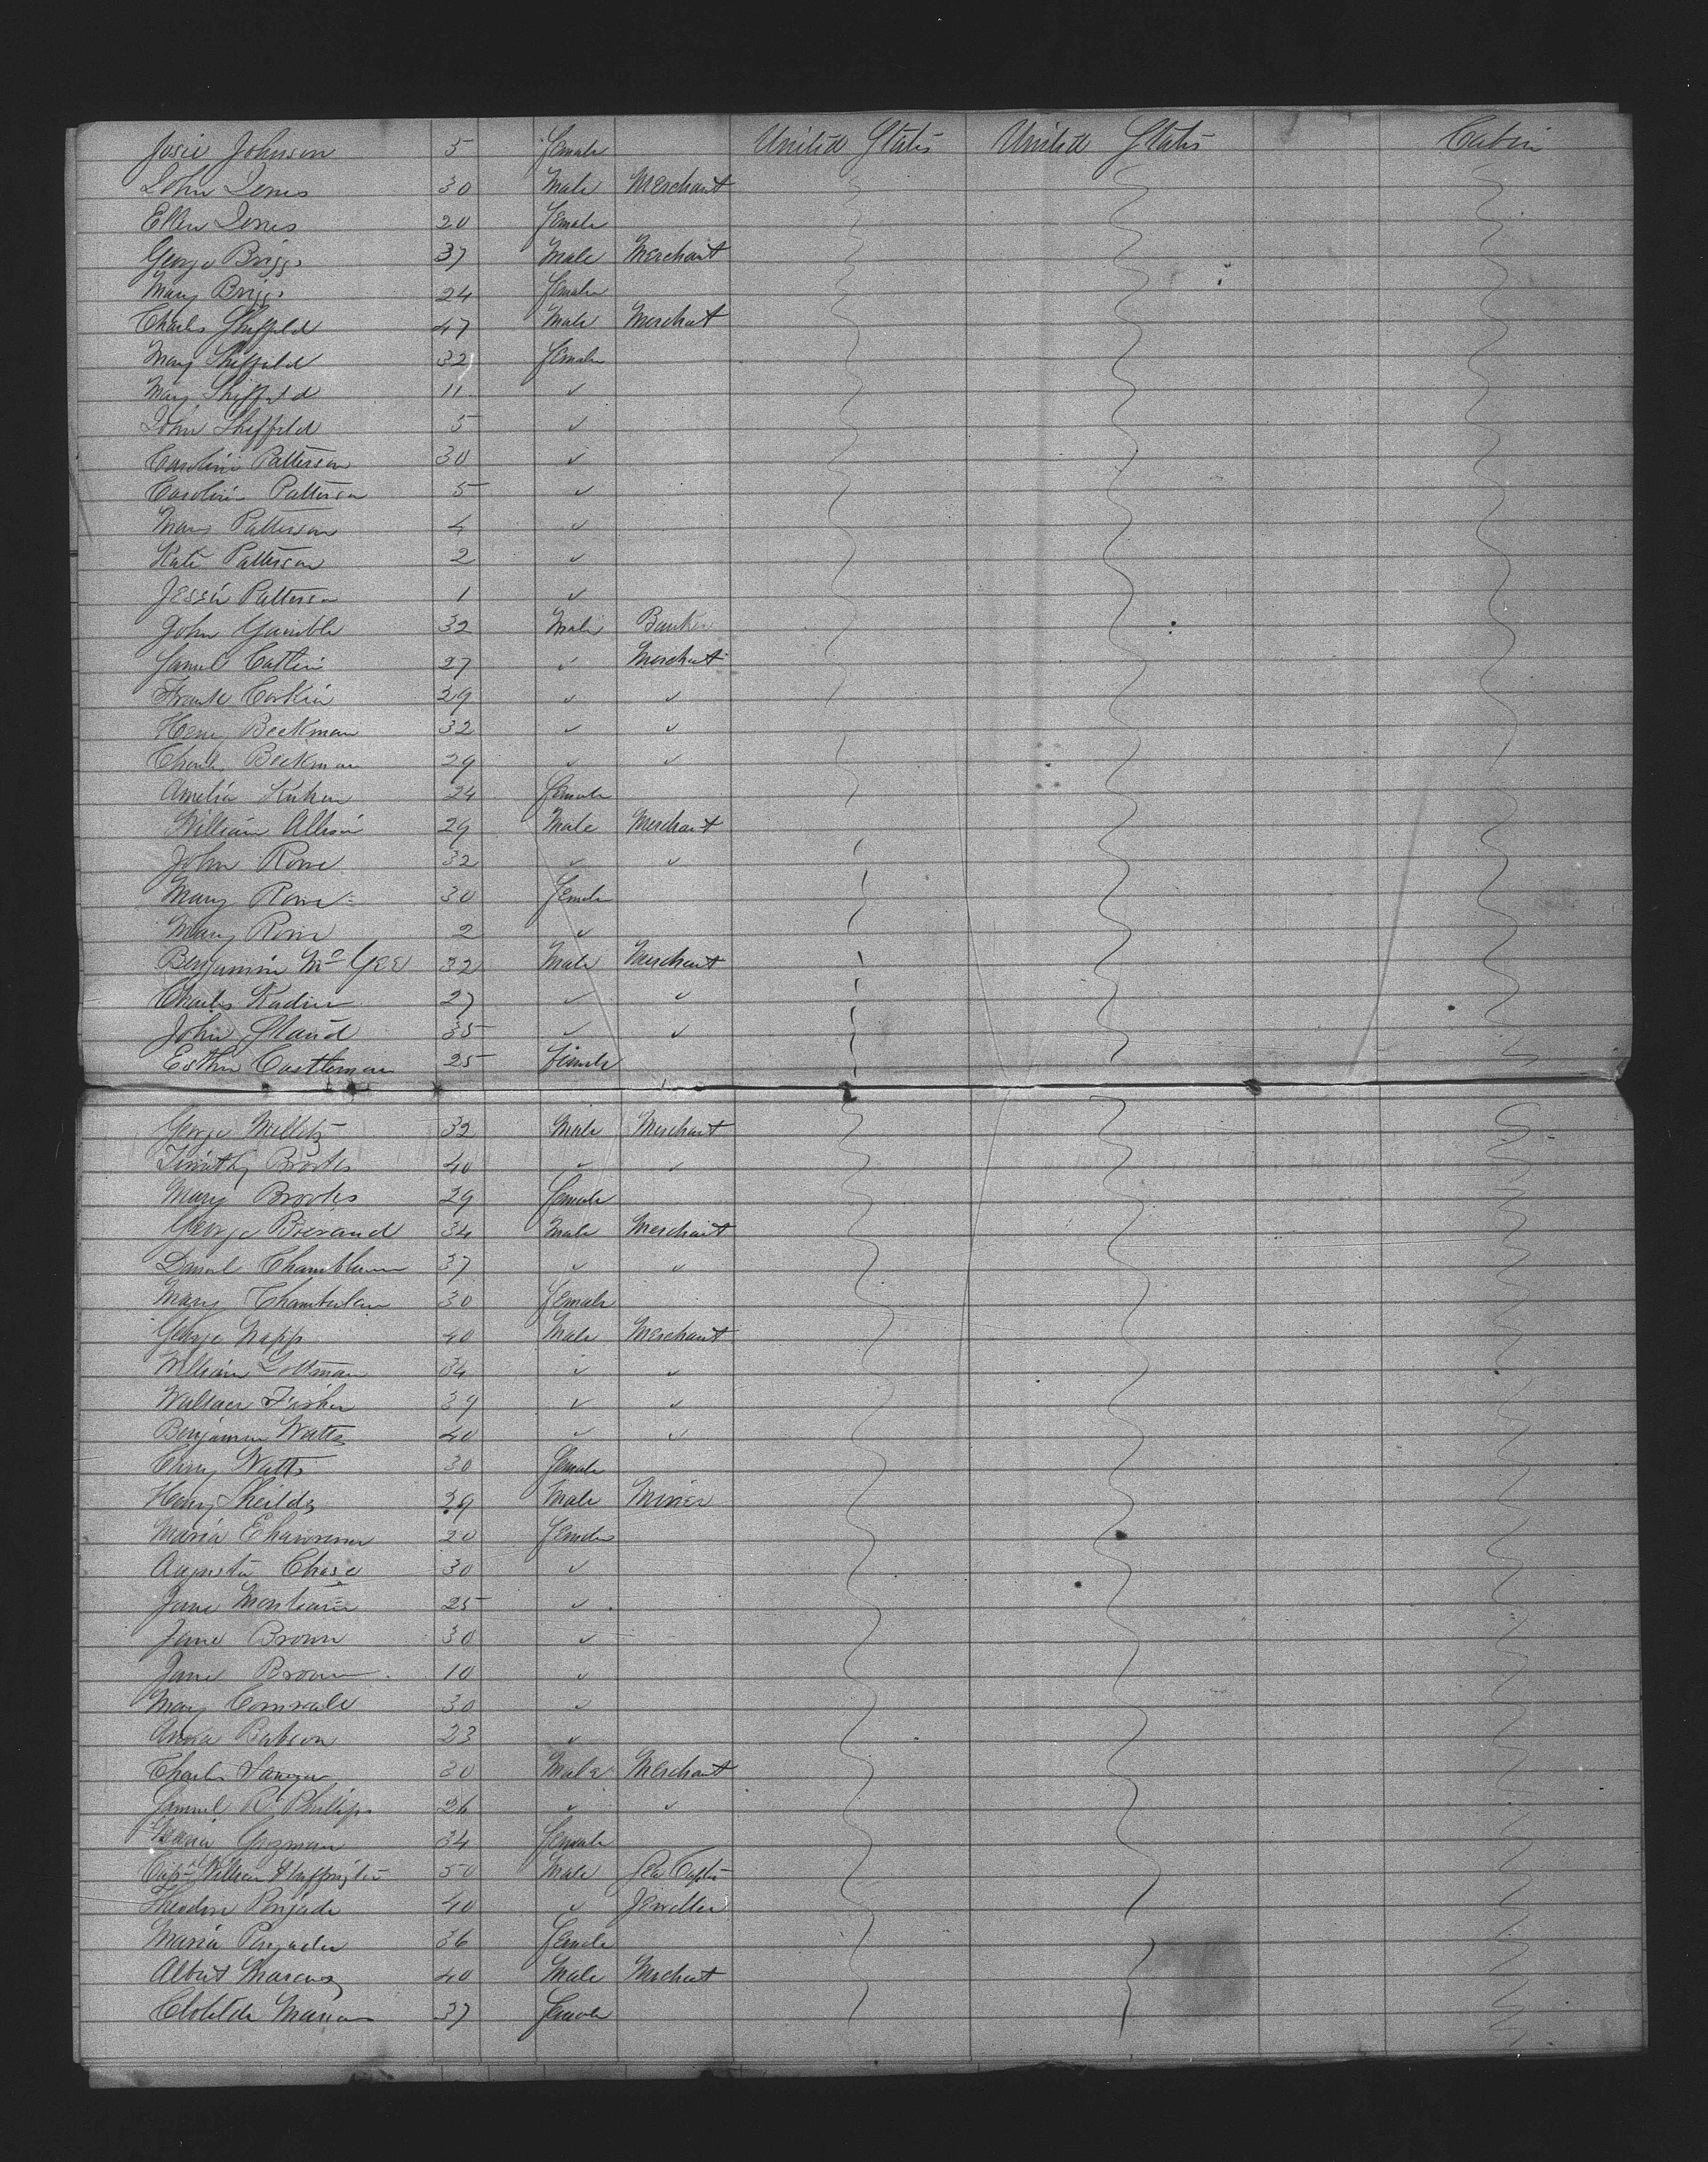 Josie Johnson 5 Female United States United States Cabin
John Jones 30 Male Merchant
Ellen Jones 20 Female
George Briggs 37 Male Merchant
Mary Briggs 24 Female
Charles Sheffield 47 Male Merchant
Mary Sheffield 32 Female
Mary Sheffield 11 ✓
John Sheffield 5 ✓
Caroline Patterson 30 ✓
Caroline Patterson 5 ✓
Mary Patterson 4 ✓
Kate Patterson 2 ✓
Jessie Patterson 1 ✓
John Gamble 32 Male Banker
Samuel Catlin 27 ✓ Merchant
Frank Corkin 29 ✓ ✓
Henry Beekman 32 ✓ ✓
Charles Beekman 29 ✓ ✓
Amelia 24 Female
William Allison 29 Male Merchant
John Rowe 32 ✓ ✓
Mary Rowe 30 Female
Mary Rowe 2 ✓
Benjamin Mc Gee 32 Male Merchant
Charles 27 ✓ ✓
John 35 ✓ ✓
Esther Castleman 25 Female
George Milletz 32 Male Merchant
Timothy Brooks 40 ✓ ✓
Mary Brooks 29 Female
George Brerand 34 Male Merchant
Daniel Chamberlain 37 ✓ ✓
Mary Chamberlain 30 Female
George Napp 40 Male Merchant
William Lottman 34 ✓ ✓
Wallace Fisher 39 ✓ ✓
Benjamin Watts 40 ✓ ✓
Carry Watts 30 Female
Henry Sheilds 29 Male Miner
Maria 20 Female
Augusta Chase 30 ✓
Jane 25 ✓
Jane Brown 30 ✓
Jane Brown 10 ✓
Mary Cornwall 30 ✓
Anna Babson 23 ✓
Charles Sawyer 30 Male Merchant
Samuel R Phillips 26 ✓ ✓
Maria Guzman 34 Female
Capt William Huffington 50 Male Sea Captn
Theodore 40 ✓ Jeweller
Maria 36 Female
Albert Marcus 40 Male Merchant
Clotilde Marcus 37 Female